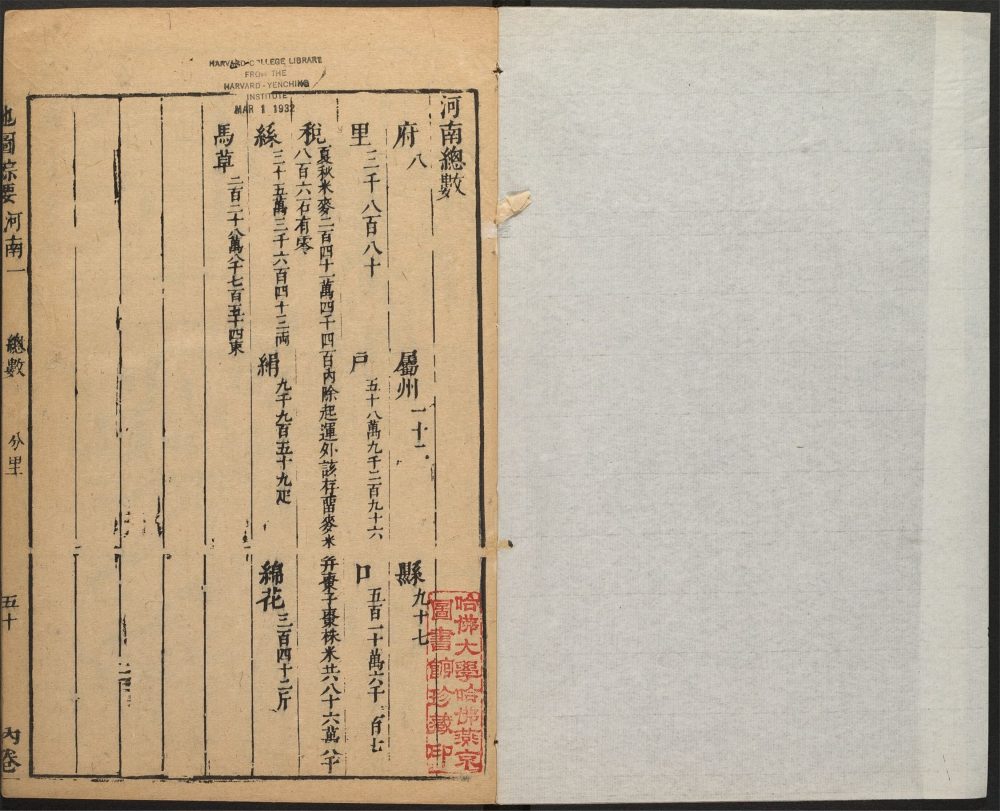 HARVARD COLLEGE LIBRARY
FROM THE
HARVARD-YENCHING
INSTITUTE
MAR 1 1932
河南總數
府 八 屬州 一十二 縣 九十七
里 二千八百八十 戶 五十八萬九千二百九十六 口 五百一十萬六千 百七
稅 夏秋米麥二百四十一萬四千四百內除起運外該存留麥米并棗子棗株米共八十六萬八千
八百六石有零
絲 三十五萬三千六百四十三兩 絹 九千九百五十九疋 綿花 三百四十二斤
馬草 二百二十八萬八千七百五十四束
地圖綜要 河南一 總數 分里 五十 內卷
哈佛大學哈佛燕京
圖書館珍藏印